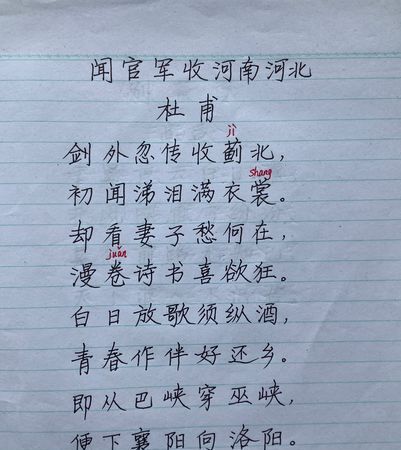 闻官军收河南河北
杜甫
jì
剑外忽传收蓟北,
shang
初闻涕泪满衣裳。
却看妻子愁何在,
juǎn
漫卷诗书喜欲狂。
白日放歌须纵酒,
青春作伴好还乡。
即从巴峡穿巫峡,
便下襄阳向洛阳。